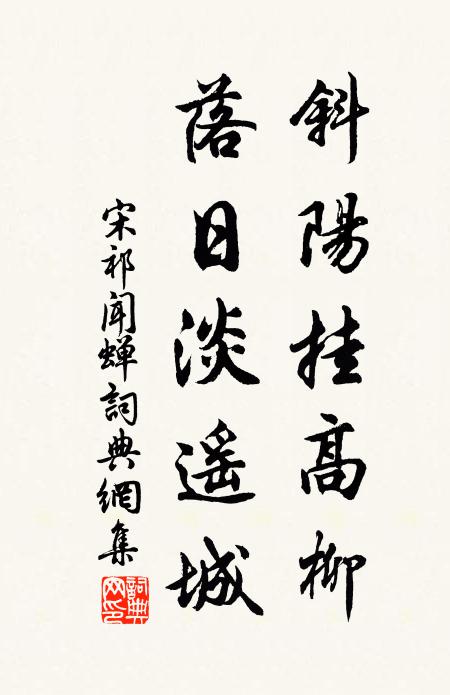 斜陽挂高柳
落日淡遥城
宋祁聞蟬詞典網集
詞典網印